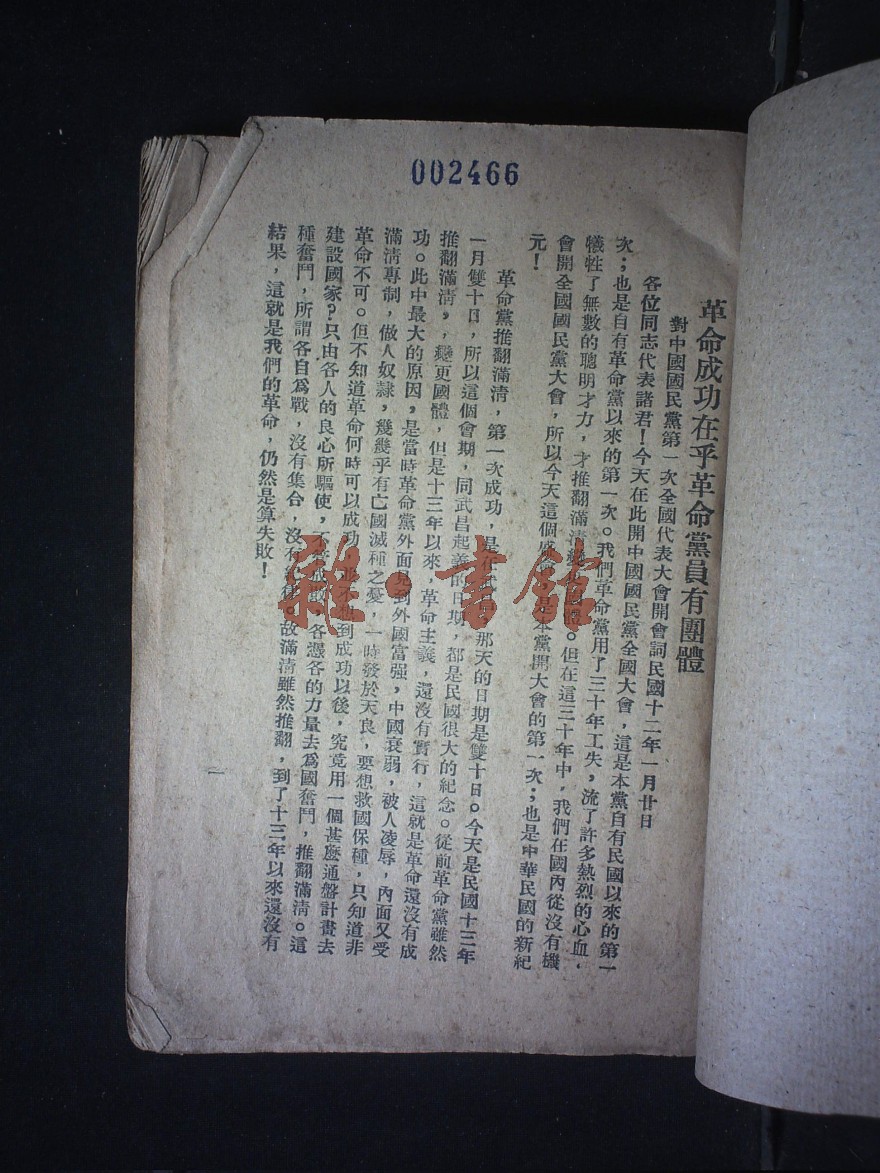 002466
革命成功在乎革命黨員有團體
對中國國民黨第一次全國代表大會開會詞民國十二年一月廿日
各位同志代表諸君!今天在此開中國國民黨全國大會,這是本黨自有民國以來的第一
次;也是自有革命黨以來的第一次。我們革命黨用了三十年工失,流了許多熱烈的心血,
犧牲了無數的聰明才力,才推翻滿清變更國體。但在這三十年中,我們在國內從沒有機
會開全國國民黨大會,所以今天這個盛會是本黨開大會的第一次;也是中華民國的新紀
元!
革命黨推翻滿清,第一次成功,是在那天的日期是雙十日。今天是民國十三年
一月雙十日,所以這個會期,同武昌起義的日期,都是民國很大的紀念。從前革命黨雖然
推翻滿清,,變更國體,但是十三年以來,革命主義,還沒有實行,這就是革命還沒有成
功。此中最大的原因,是當時革命黨外面見到外國富强,中國衰弱,被人凌辱,內面又受
滿清專制,做人奴隸,幾幾乎有亡國滅種之憂,一時發於天良,要想救國保種,只知道非
革命不可。但不知道革命何時可以成功不想到成功以後,究竟用一個甚麼通盤計畫去
建設國家?只由各人的良心所驅使,不管成敗,各憑各的力量去爲國奮鬥,推翻滿清。這
種奮鬥,所謂各自爲戰,沒有集合,沒有。故滿清雖然推翻,到了十三年以來還沒有
結果,這就是我們的革命,仍然是算失敗!
一
雜·書館